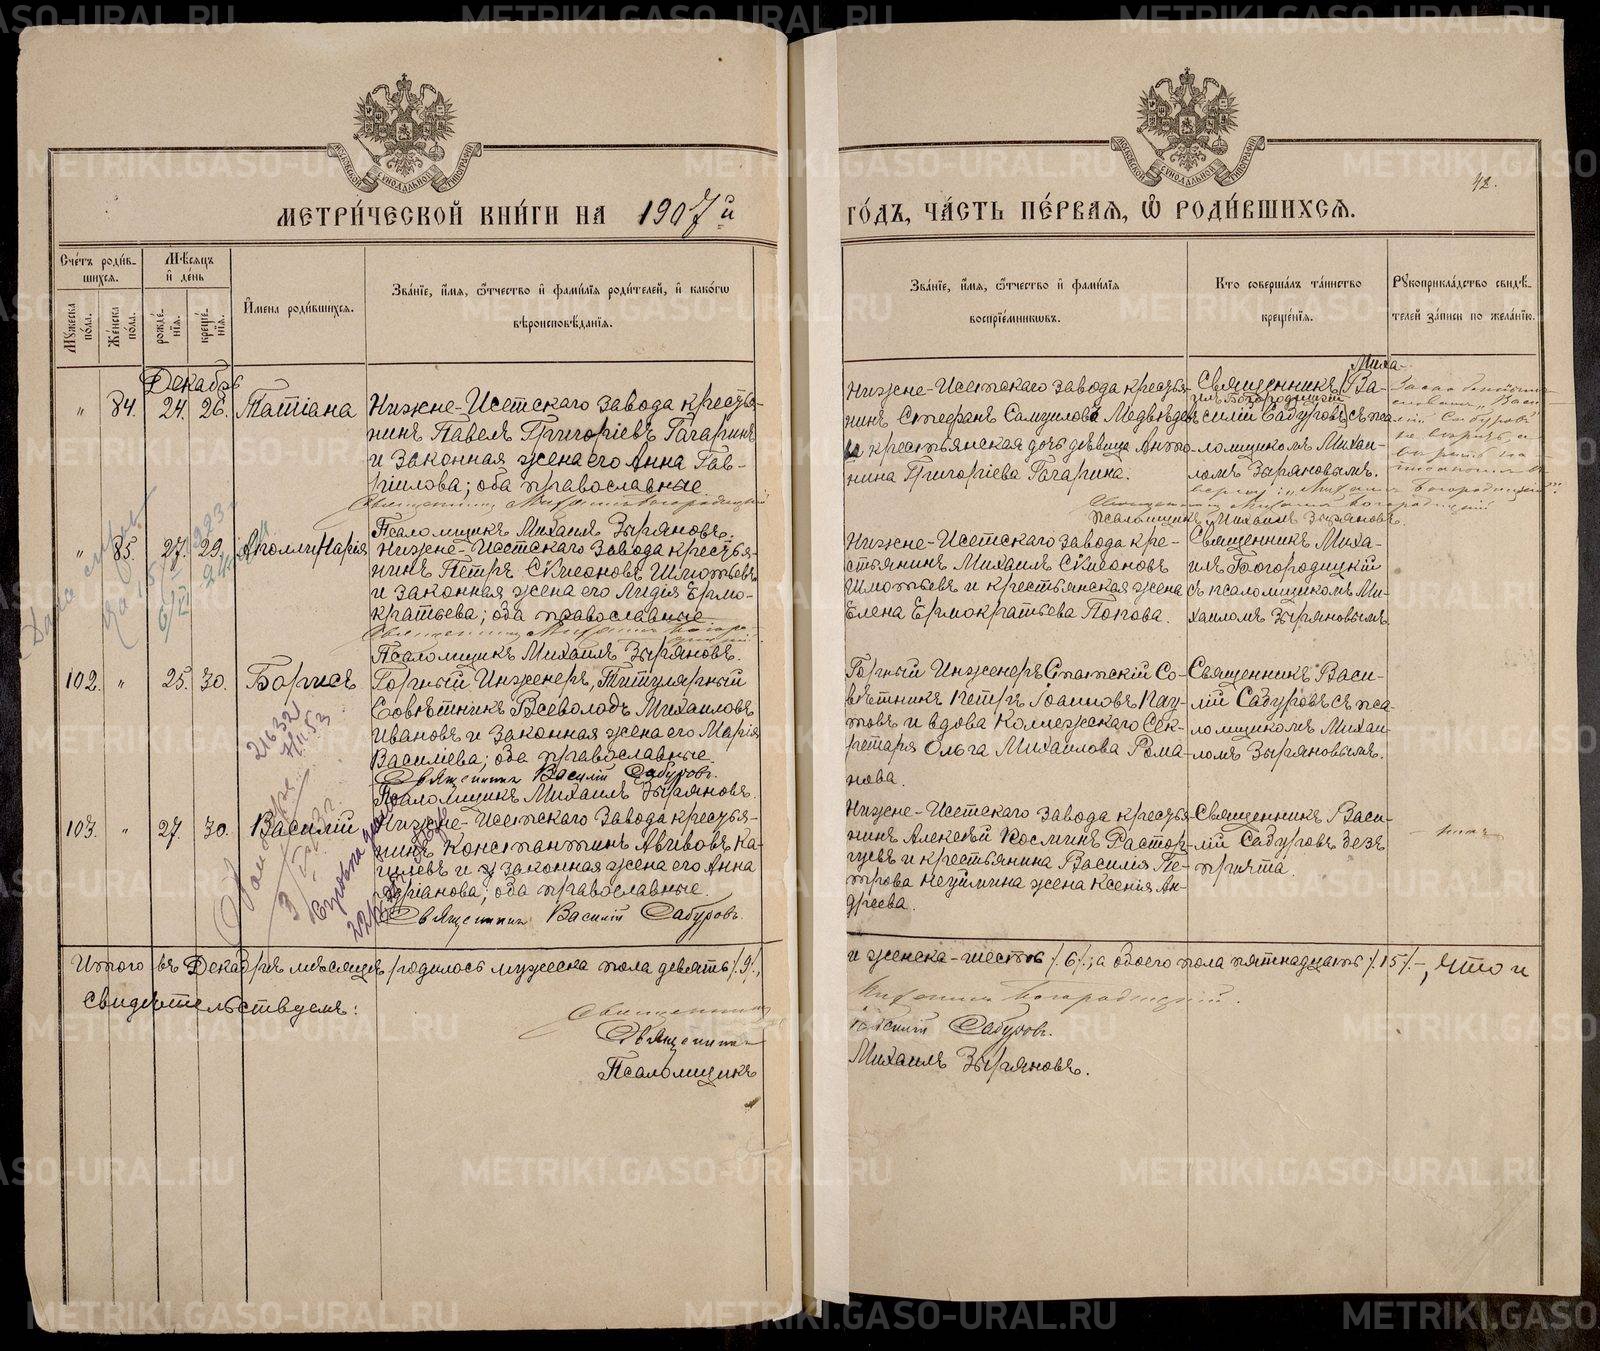 МЕТРИ́ЧЕСКОЙ КНИ́ГИ НА 1907й
ГО́ДЪ, ЧА́СТЬ ПЕ́РВАЯ, Ѽ РОДИ́ВШИХСЯ.
42.
Сче́тъ роди́в-
шихся.
Му́жеска по́ла.
Же́нска по́ла.
Мѣ́сяцъ и де́нь
рожде́-
нія.
креще́-
нія.
И́мена роди́вшихся.
Зва́ніе, и́мя, ѻ҆́тчество и фами́лія роди́телей, и како́гѡ
вѣроисповѣ́данія.
Зва́ніе, и́мя, ѻ҆́тчество и фами́лія
воспріе́мниковъ.
Кто соверша́лъ та́инство
креще́нія.
Рукоприкла́дство свидѣ́-
телей за́писи по жела́нію.
Декабрь
" 84. 24. 26. Татіана
Нижне-Исетскаго завода крестья-
нинъ Павелъ Григоріевъ Гагаринъ
и законная жена его Анна Гав-
риилова; оба православные
Священникъ Михаилъ Богородицкій
Псаломщикъ Михаилъ Зыряновъ.
Нижне-Исетскаго завода крестья-
нинъ Стефанъ Самуиловъ Медвѣдевъ
и крестьянская дочь дѣвица Анто-
нина Григоріева Гагарина.
Миха-
Священникъ Ва-
илъ Богородицкій
силій Сабуровъ съ пса-
ломщикомъ Михаи-
ломъ Зыряновымъ.
Псаломщикъ Михаилъ Зыряновъ.
" 85. 27. 29. Аполлинарія
Нижне-Исетскаго завода крестья-
нинъ Петръ
и законная жена его Лидія Ермо-
кратьева; оба православные
Псаломщикъ Михаилъ Зыряновъ.
Нижне-Исетскаго завода кре-
стьянинъ Михаилъ
и крестьянская жена
Елена Ермократьева Попова.
Священникъ Миха-
илъ Богородицкій
съ псаломщикомъ Ми-
хаиломъ Зыряновымъ.
102. " 25. 30. Борисъ
Горный Инженеръ, Титулярный
Совѣтникъ Всеволодъ Михаиловъ
Ивановъ и законная жена его Марія
Василіева; оба православные.
Священникъ Василій Сабуровъ.
Псаломщикъ Михаилъ Зыряновъ.
Горный Инженеръ Статскій Со-
вѣтникъ Петръ Іоанновъ Пау-
товъ и вдова Коллежскаго Сек-
ретаря Ольга Михаилова Рома-
нова.
Священникъ Васи-
лій Сабуровъ съ пса-
ломщикомъ Михаи-
ломъ Зыряновымъ.
103. " 27. 30. Василій
Нижне-Исетскаго завода крестья-
нинъ Константинъ Авивовъ Ка-
и законная жена его Анна
Адріанова; оба православные.
Священникъ Василій Сабуровъ.
Нижне-Исетскаго завода крестья-
нинъ Алексѣй Косминъ Растор-
гуевъ и крестьянина Василія Пе-
трова жена Ксенія Ан-
дреева.
Священникъ Васи-
лій Сабуровъ безъ
причта.
Итого въ Декабрѣ мѣсяцѣ родилось мужеска пола девять /.9/.,
и женска-шесть /.6/.; а обоего пола пятнадцать /.15/.-, что и
свидѣтельствуемъ:
Священникъ Михаилъ Богородицкій.
Священникъ Василій Сабуровъ.
Псаломщикъ Михаилъ Зыряновъ.
METRIKI.GASO-URAL.RU